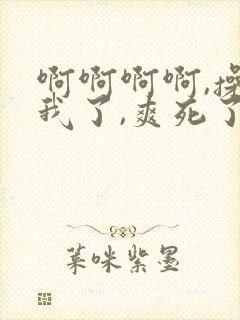 啊啊啊啊,操
我了,爽死了
菜咪紫墨